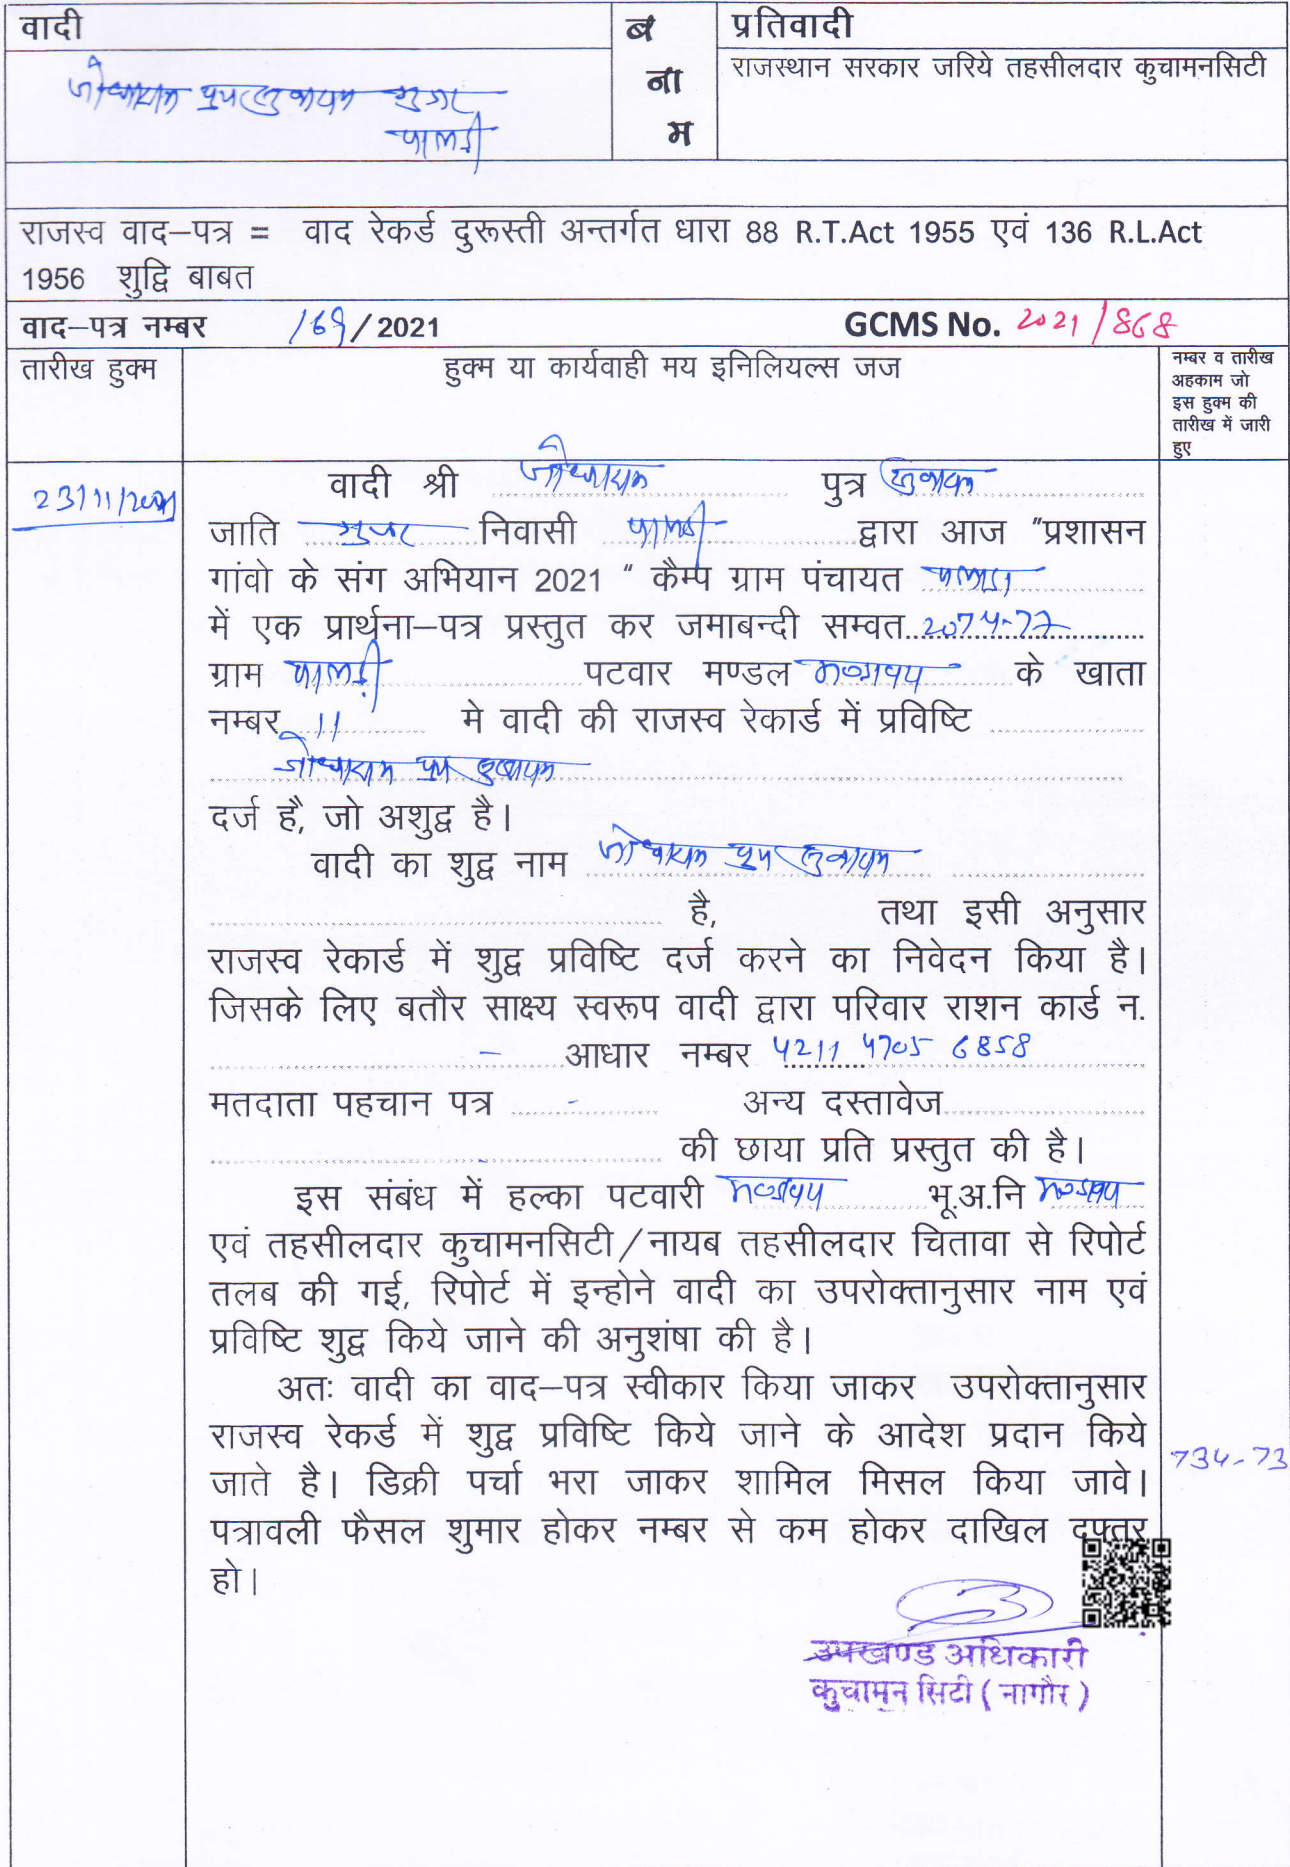 वादी
ब
ना
म
प्रतिवादी
राजस्थान सरकार जरिये तहसीलदार कुचामनसिटी
राजस्व वाद–पत्र = वाद रेकर्ड दुरूस्ती अन्तर्गत धारा 88 R.T.Act 1955 एवं 136 R.L.Act
1956 शुद्वि बाबत
वाद–पत्र नम्बर 169 / 2021 GCMS No. 2021/868
तारीख हुक्म
हुक्म या कार्यवाही मय इनिलियल्स जज
नम्बर व तारीख
अहकाम जो
इस हुक्म की
तारीख में जारी
हुए
23/11/2021
वादी श्री पुत्र
जाति गुर्जर निवासी पालडी द्वारा आज "प्रशासन
गांवो के संग अभियान 2021 " कैम्प ग्राम पंचायत
में एक प्रार्थना–पत्र प्रस्तुत कर जमाबन्दी सम्वत 2074-77
ग्राम पालडी पटवार मण्डल के खाता
नम्बर 11 मे वादी की राजस्व रेकार्ड में प्रविष्टि
दर्ज है, जो अशुद्व है।
वादी का शुद्व नाम
है, तथा इसी अनुसार
राजस्व रेकार्ड में शुद्व प्रविष्टि दर्ज करने का निवेदन किया है।
जिसके लिए बतौर साक्ष्य स्वरूप वादी द्वारा परिवार राशन कार्ड न.
– आधार नम्बर 4211 4705 6858
मतदाता पहचान पत्र - अन्य दस्तावेज
- की छाया प्रति प्रस्तुत की है।
इस संबंध में हल्का पटवारी भू.अ.नि
एवं तहसीलदार कुचामनसिटी/नायब तहसीलदार चितावा से रिपोर्ट
तलब की गई, रिपोर्ट में इन्होने वादी का उपरोक्तानुसार नाम एवं
प्रविष्टि शुद्व किये जाने की अनुशंषा की है।
अतः वादी का वाद–पत्र स्वीकार किया जाकर उपरोक्तानुसार
राजस्व रेकर्ड में शुद्व प्रविष्टि किये जाने के आदेश प्रदान किये
जाते है। डिक्री पर्चा भरा जाकर शामिल मिसल किया जावे।
पत्रावली फैसल शुमार होकर नम्बर से कम होकर दाखिल दफ्तर
हो।
734-73
उपखण्ड अधिकारी
कुचामन सिटी ( नागौर )